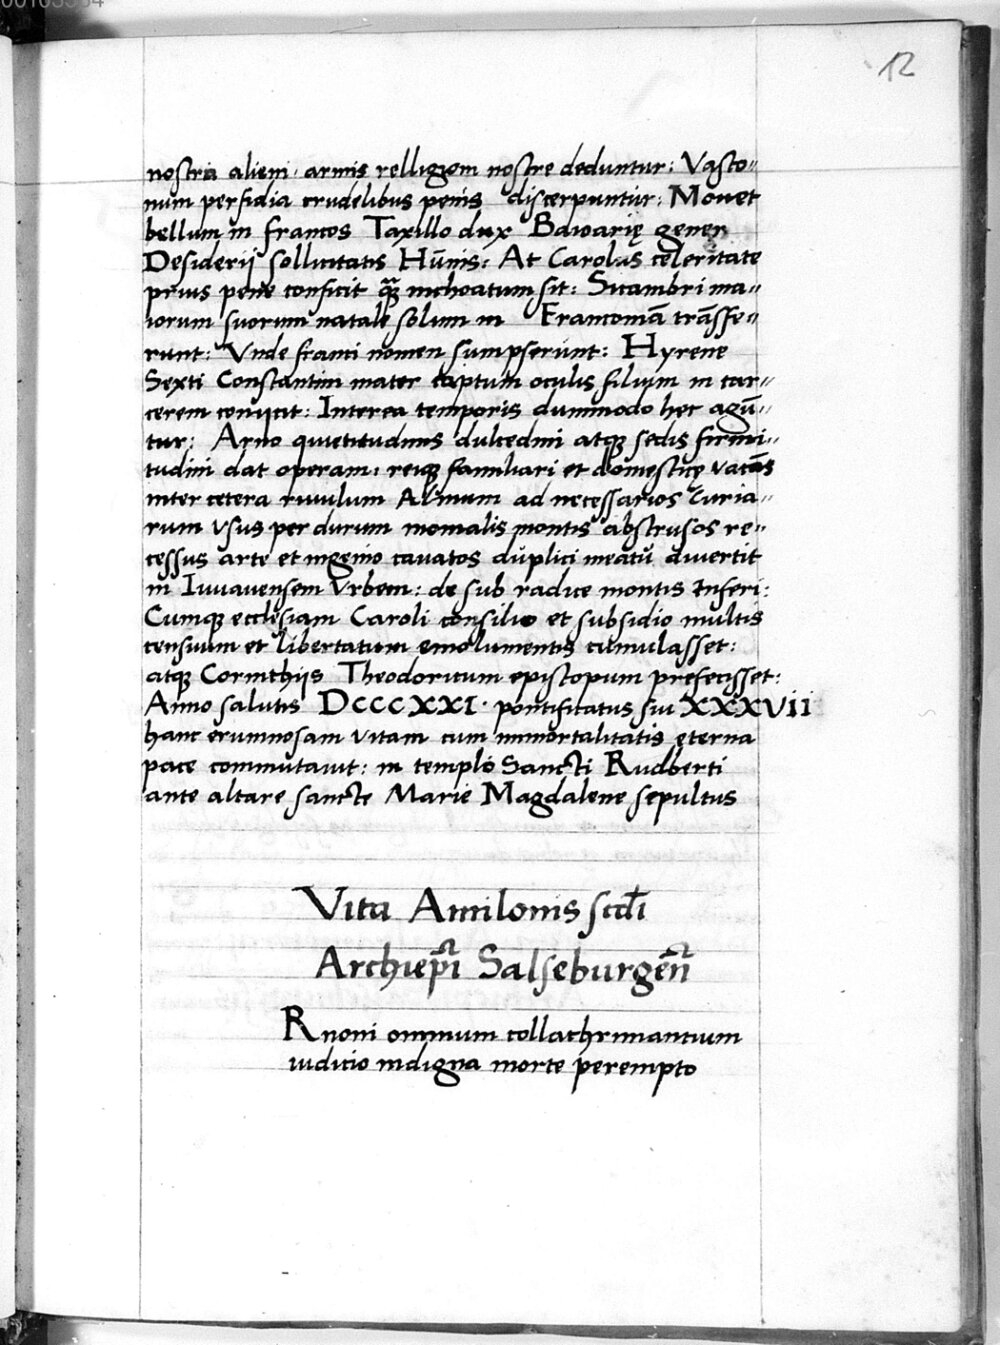 00103354
12
nostra alieni armis relligiom nostre deduntur: Vasto=
num perfidia crudelibus penis discerpuntur: Mouet
bellum in francos Taxillo dux Bawarię gener
Desiderij sollicitatis Hūnis: At Carolus celeritate
prius pene conficit qu̅ȝ inchoatum sit: Sicambri ma=
iorum suorum natale solum in Franconiā trāsfe=
runt: Vnde franci nomen sumpserunt: Hyrene
Sexti Constantini mater captum oculis filium in car=
cerem coniicit: Interea temporis dummodo hec agū=
tur: Arno quietitudinis dulcedini atqȝ sedis firmi=
tudini dat operam: reiqȝ familiari et domesticę vacās
inter cetera riuulum Almum ad necessarios Curia=
rum vsus per durum monialis montis abstrusos re=
cessus arte et ingenio cauatos duplici meatū diuertit
in Iuuauensem Vrbem: de sub radice montis Inferi:
Cumqȝ ecclesiam Caroli consilio et subsidio multis
censuum et libertatum emolumentis cumulasset:
atqȝ Corinthijs Theodoricum episcopum prefecisset:
Anno salutis DCCCXXI· pontificatus sui XXXVII
hanc erumnosam vitam cum immortalitatis eterna
pace commutauit: in templo Sancti Rudberti
ante altare sancte Marie Magdalene sepultus
Vita Amilonis scdi
Archiepi Salseburgen̄
Arnoni omnium collachrimantium
iudicio indigna morte perempto